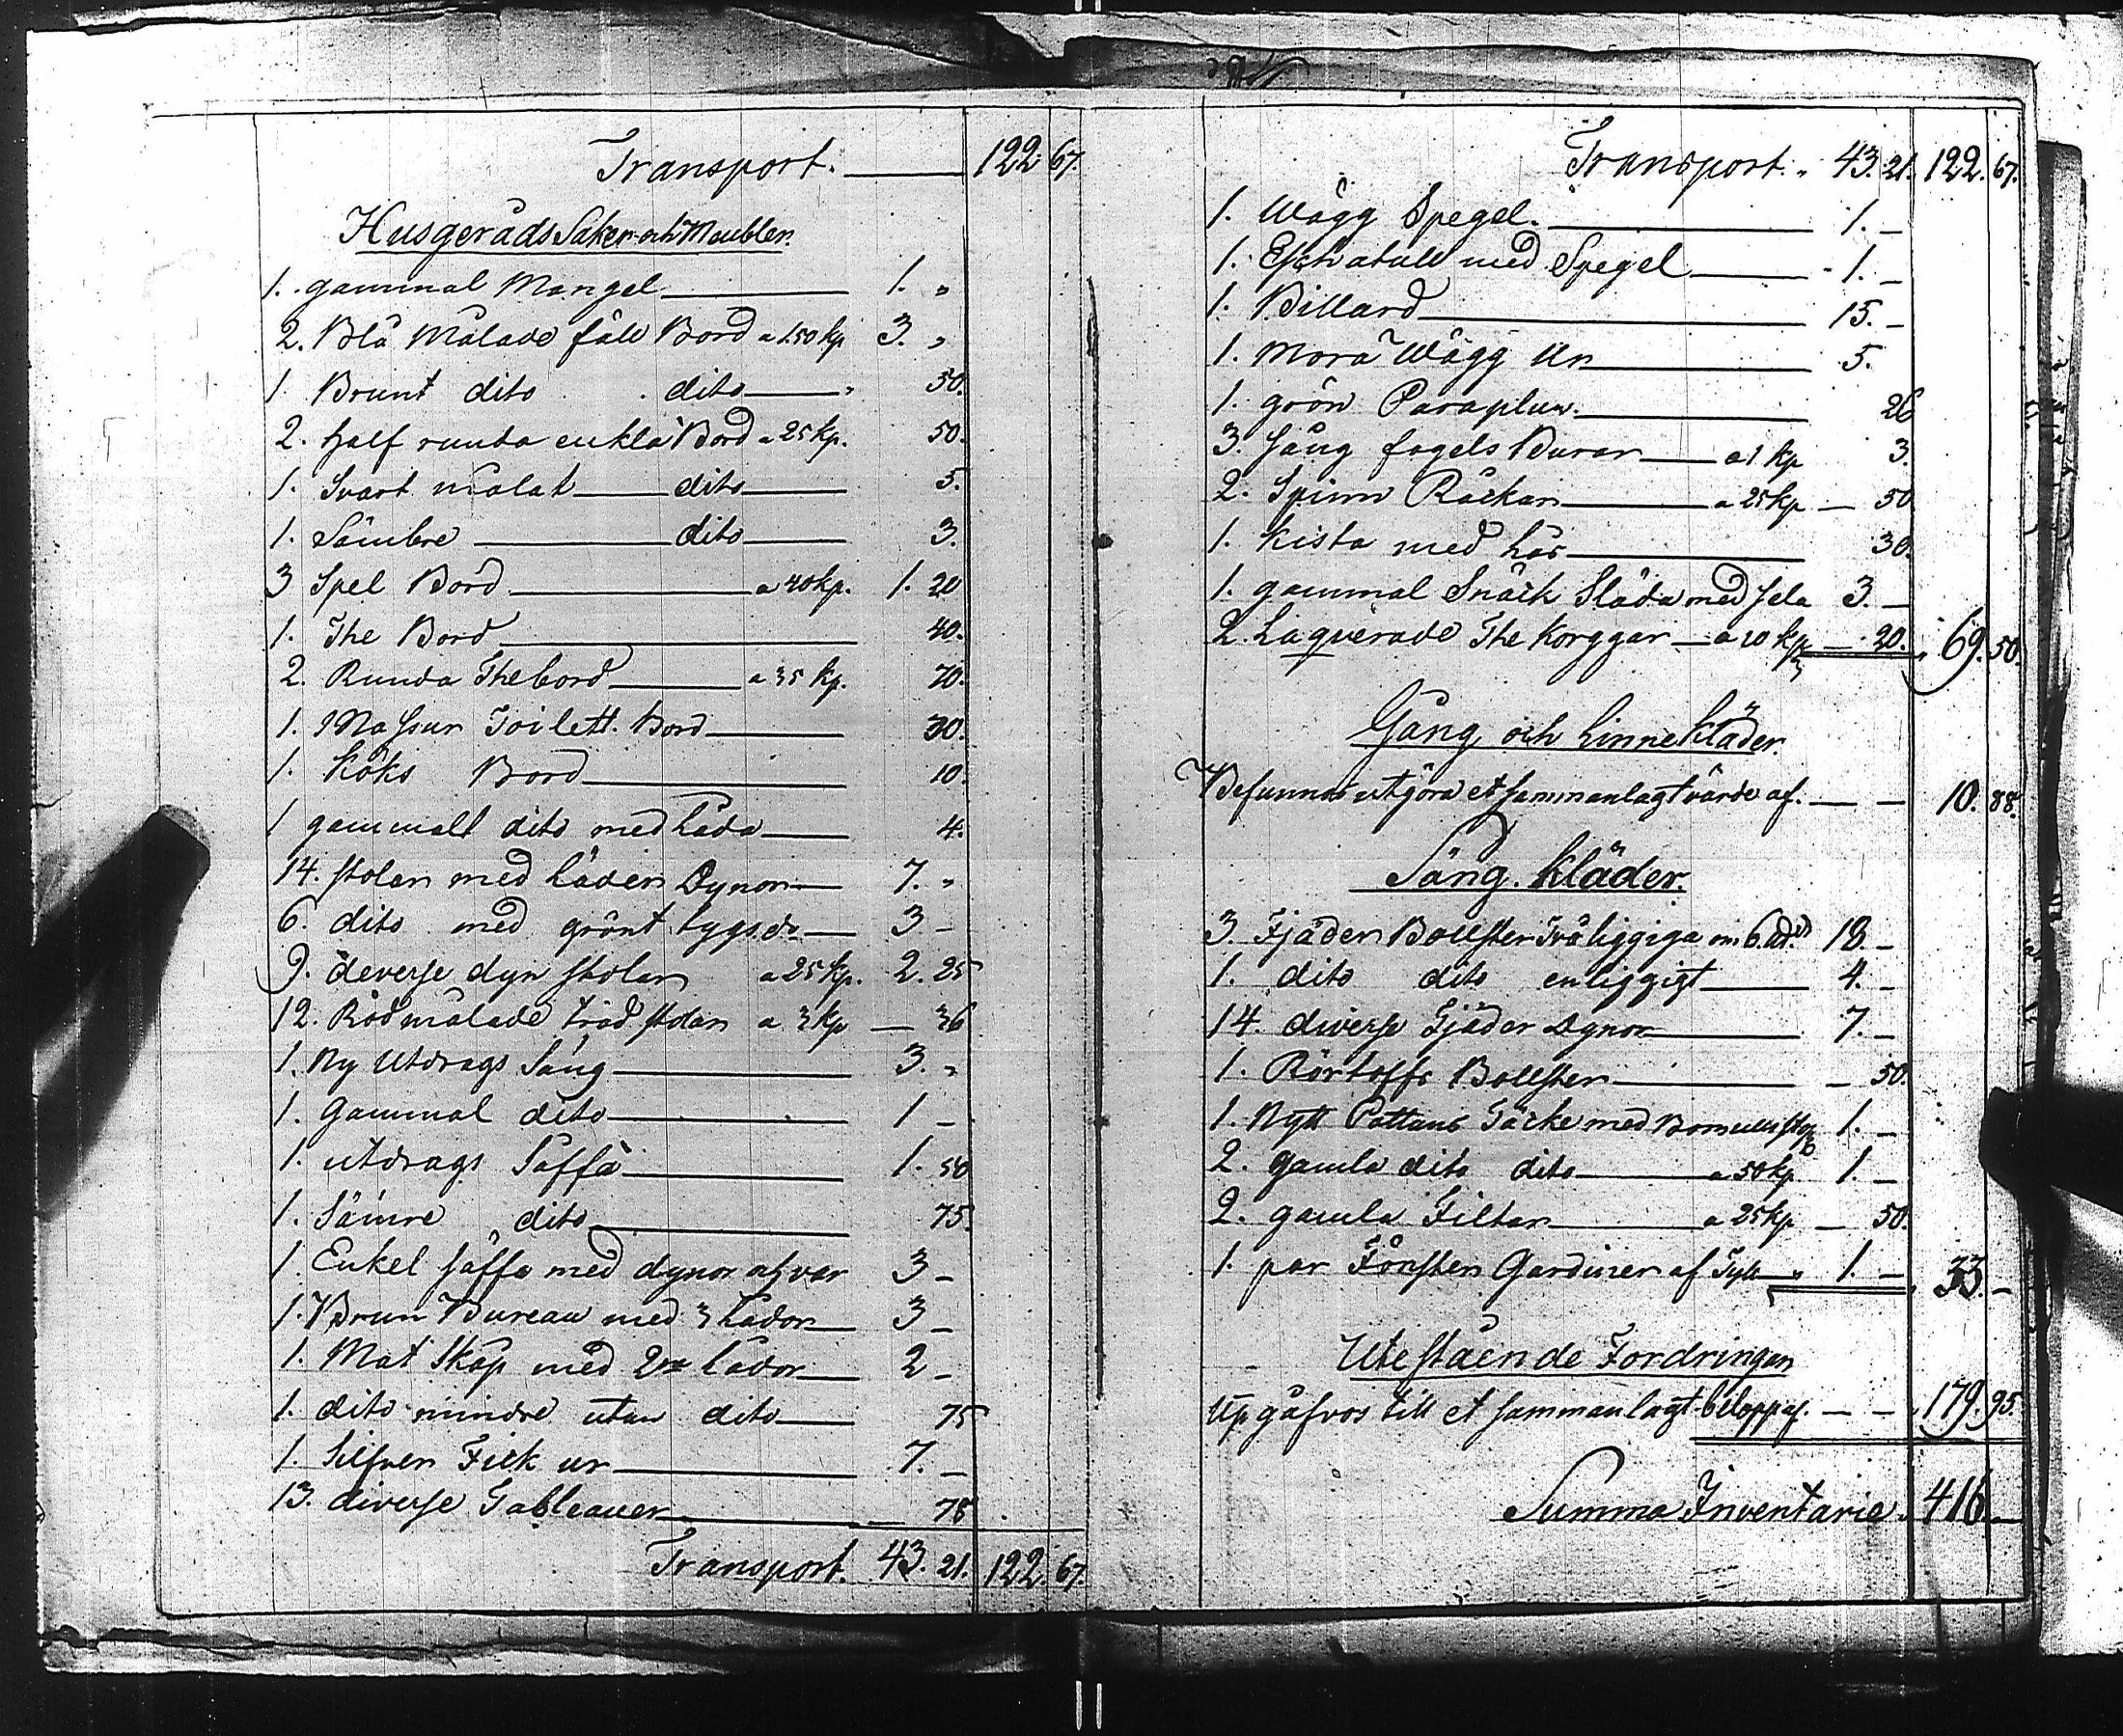 Transport. 122 67.
Husgeråds Saker och Meubler.
1. gammal Mangel 1. "
2. Blå Målade fäll Bord a 1.50 kp 3. "
1 Brunt dito dito 50.
2. half runda enkla Bord a 25 kp. 50.
1. Svart målat dito 5.
1. Sämbre dito 3.
3 Spel Bord a 40 kp. 1. 20
1. The Bord 40.
2. Runda Thebord a 35 kp. 70.
1. Massur Toilett. Bord 30.
1. Köks Bord 10.
1 gammalt dito med Låda 4.
14. stolar med Läder Dynor 7. "
6. dito med grönt tygs do 3 –
9. deverse dyn stolar a 25 kp. 2. 25
12. Rödmålade träd stolar a 3 kp — 36
1. Ny Utdrags Säng 3. "
1. Gammal dito 1 –
1. utdrags Saffa 1. 50
1. Sämre dito 75.
1. Enkel saffa med dynor af var 3 –
1. Brun Bureau med 3 Lådor 3 –
1. Mat Skåp med 2ne Lådor 2 –
1. dito mindre utan dito 75
1. Silfver Fick ur 7. –
13. diverse Tableauer 78
Transport. 43. 21. 122. 67.
Transport. 43. 21. 122. 67.
1. Wägg Spegel. 1. –
1. med Spegel 1. –
1. Billard 15. –
1. Mora Wägg Ur 5.
1. grön Parapluw. 26
3. Sång fogels Burar a 1 kp 3.
2. Spinn Råckar a 25 kp — 50
1. Kista med Lås 30.
1. gammal Snäck Släda med Sela 3. –
2. Laquerade The Korggar a 10 kp — 20. 69. 50.
Gång och Linnekläder
Befunnos utgöra et sammanlagt värde af. — — 10. 88.
Säng. Kläder.
3. Fjäder Bollster Tvåliggiga om 6. 18. –
1. dito dito enliggigt 4. –
14. diverse Fjäder Dynor 7. –
1. Bollster — 50.
1. Nytt Täcke med 1. –
2. gamla dito dito a 50 kp 1. –
2. gamla Filtar a 25 kp — 50.
1. par Fönster Gardiner af Tyll 1. – 33. –
Utestående Fordringar
Upgåfvos till et sammanlagt belopp af. — — 179. 95.
Summa Inventarie. 416. —